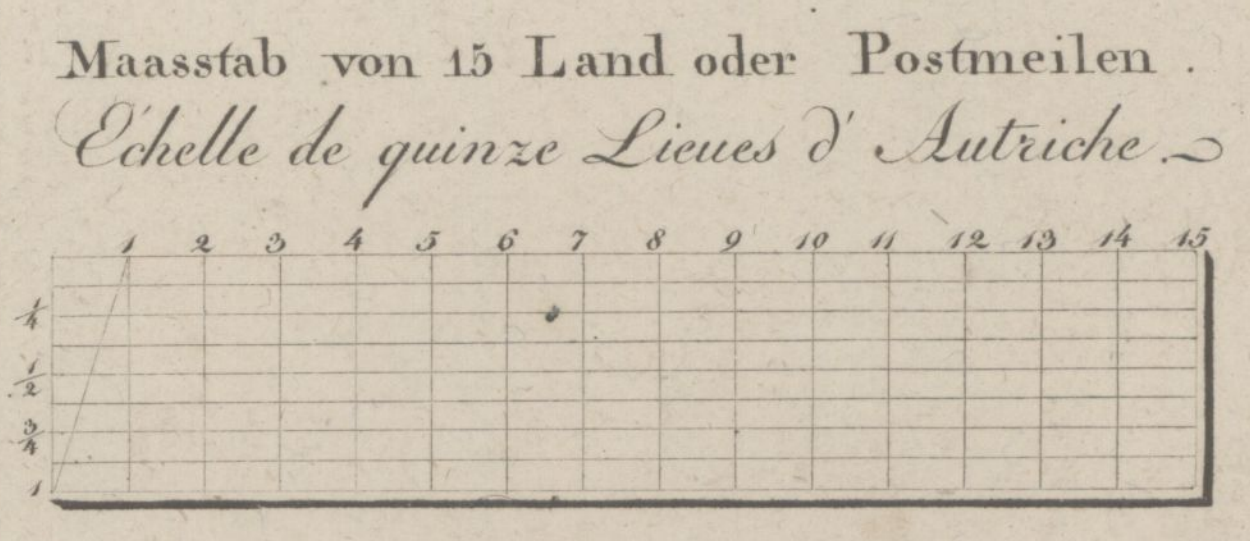 Maasstab von 15 Land oder Postmeilen .
Échelle de quinze Lieues d' Autriche .
1 2 3 4 5 6 7 8 9 10 11 12 13 14 15
1/4
1/2
3/4
1